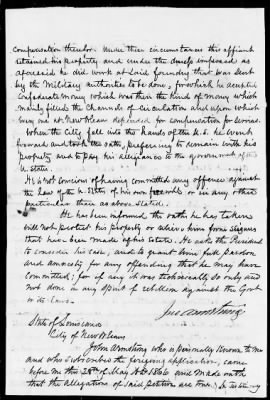 Compensation therefor. Under these circumstances this affiant
retained his property and under the duress imposed as
aforesaid he did work at said foundry that was sent
by the Military authorities to be done, for which he accepted
Confederate money which was then the kind of money which
mainly filled the Channels of Circulation and upon which
every one at New Orleans depended for compensation for services.
When the City fell into the hands of the U.S. he went
forward and took the oath, preferring to remain with his
property and to pay his allegiance to the government of the
U. States.
He is not conscious of having committed any offences against
the laws of the U. States of his own free will or in any other
particular than as above stated.
He has been informed the oath he has taken
will not protect his property or relieve him from seizures
that have been made of his estate. He asks the President
to consider his case, and to grant him full pardon
and amnesty for any offending that he may have
committed; for if any it was technically so only and
not done in any spirit of rebellion against the Govt
or its laws.
Jno Armstrong
State of Louisiana
City of New Orleans
John Armstrong who is personally known to me
and who subscribed the foregoing application, came
before me this 28th of May AD 1866 and made oath
that the allegations of said petition are true. In testimony